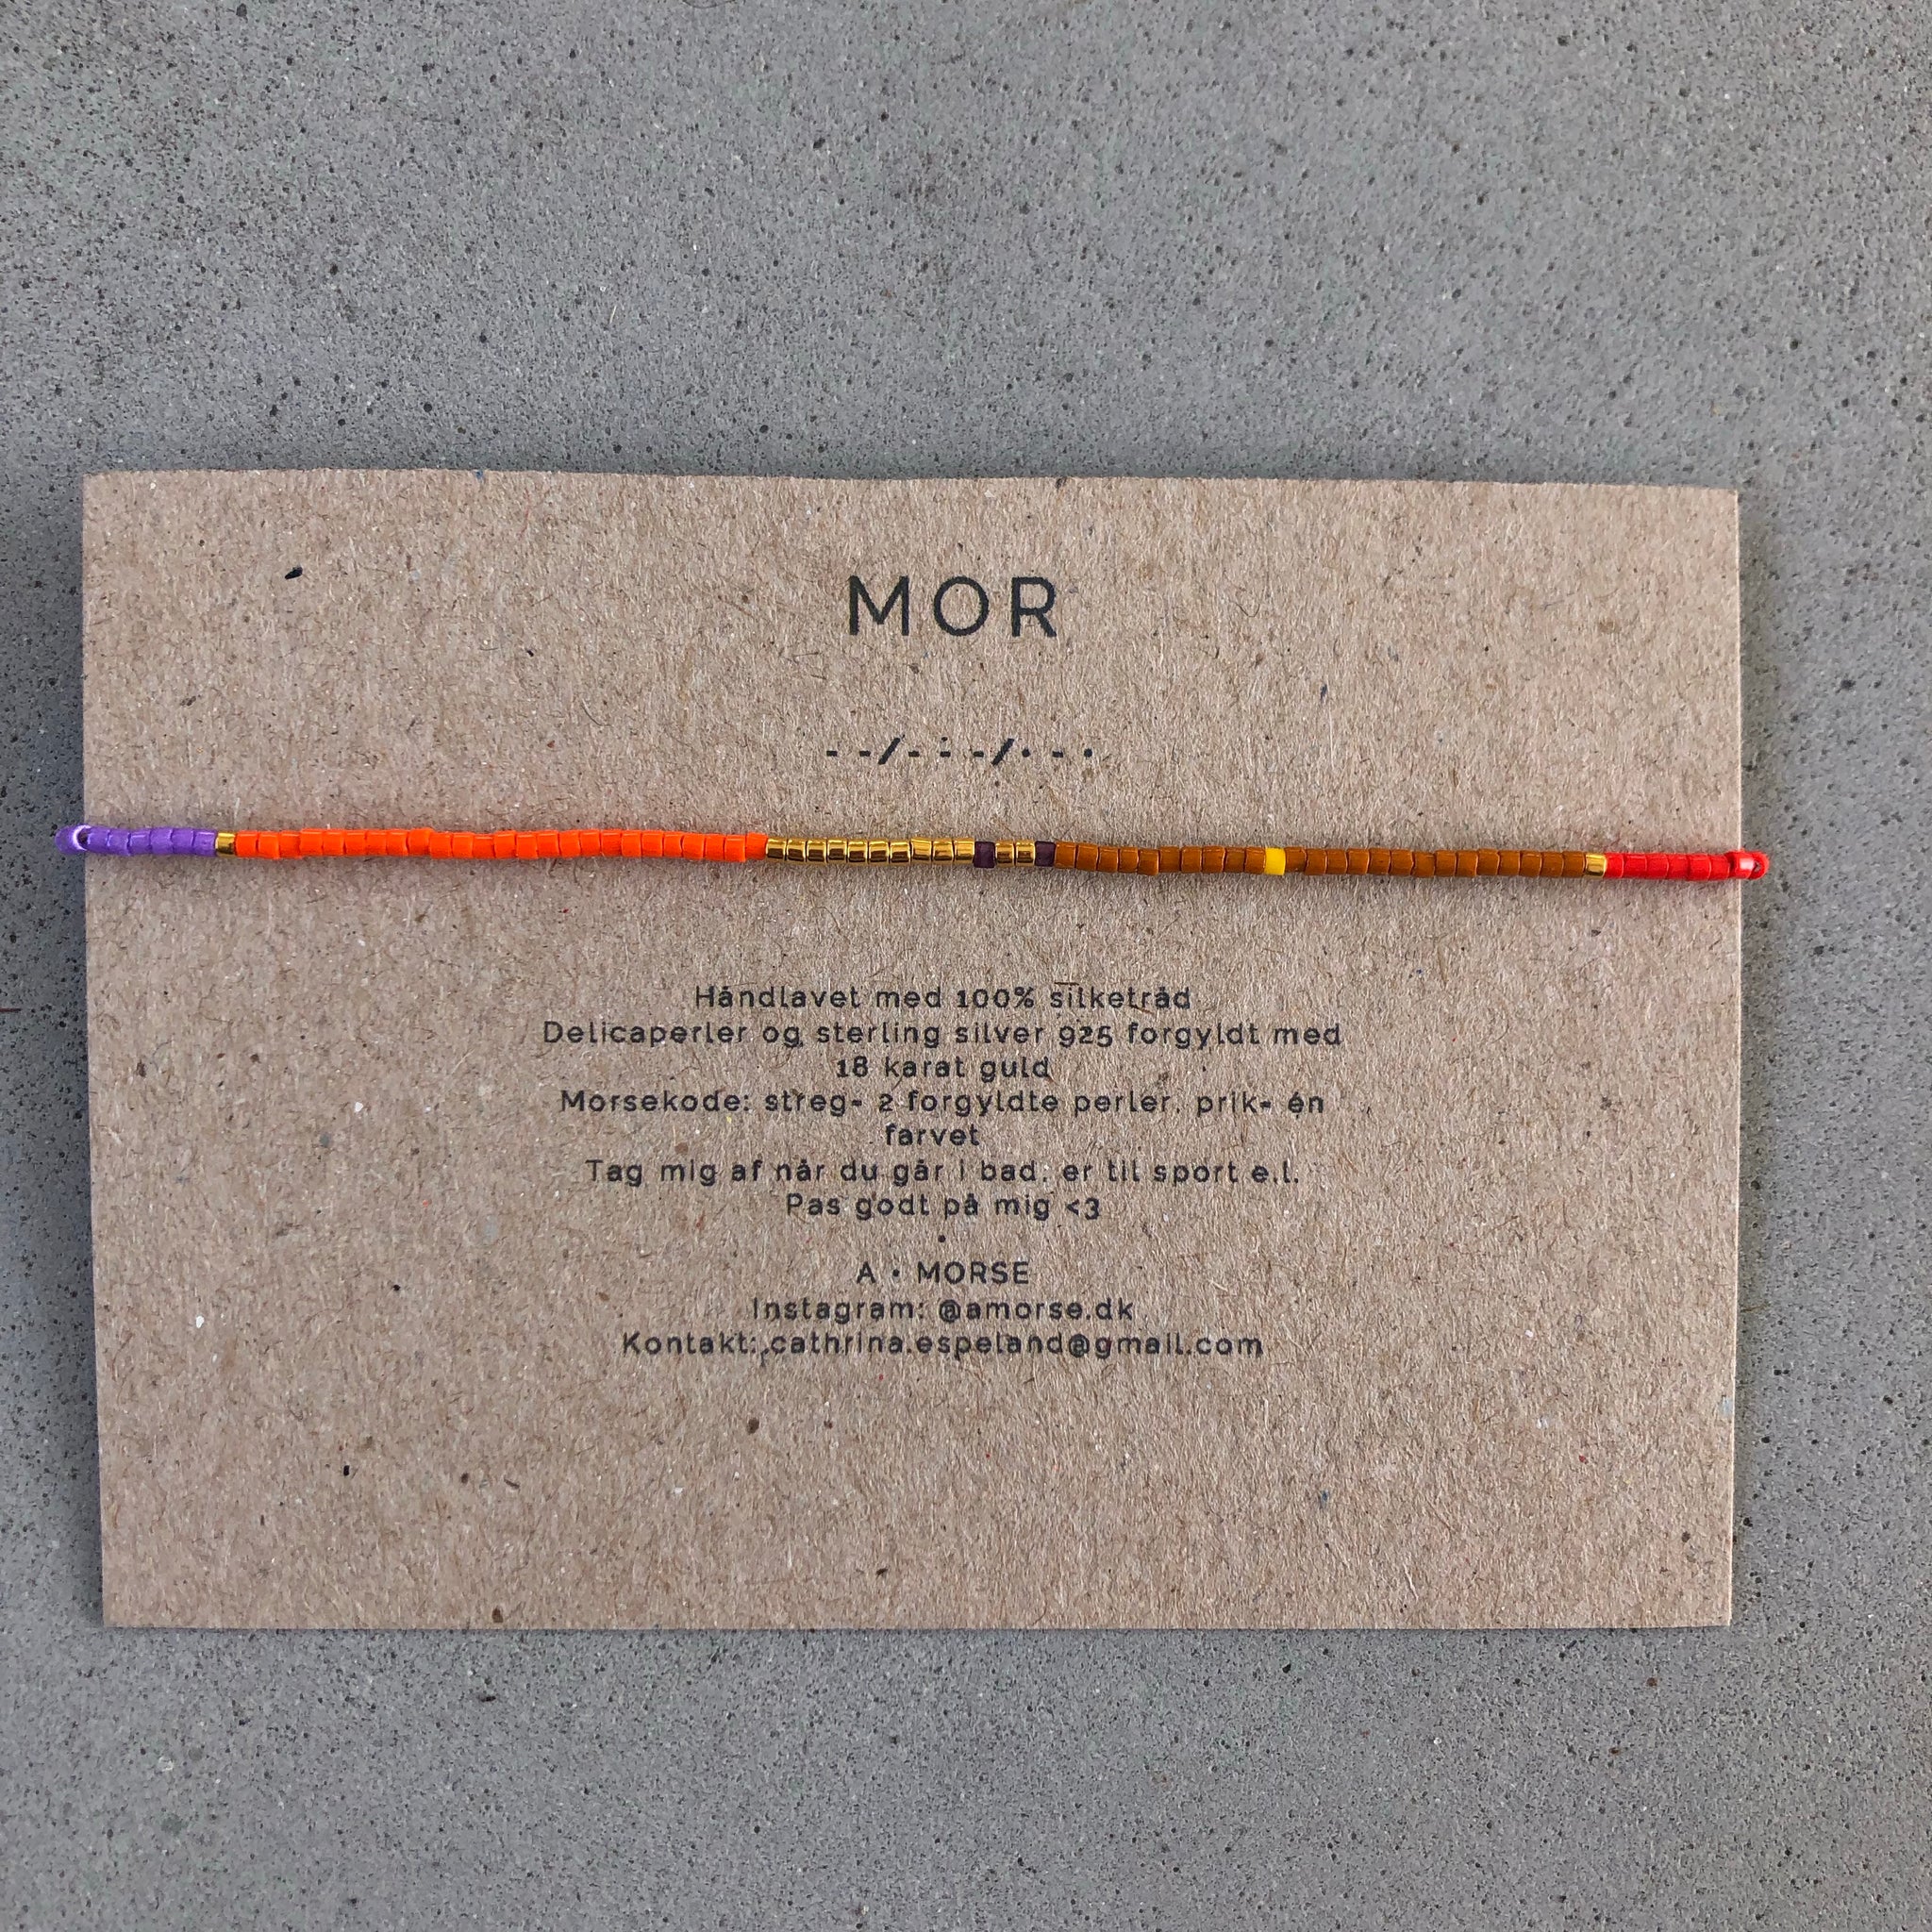 MOR
- -/- - -/· - ·
Håndlavet med 100% silketråd
Delicaperler og sterling silver 925 forgyldt med
18 karat guld
Morsekode: streg= 2 forgyldte perler, prik= én
farvet
Tag mig af når du går i bad, er til sport e.l.
Pas godt på mig <3
•
A • MORSE
Instagram: @amorse.dk
Kontakt: cathrina.espeland@gmail.com